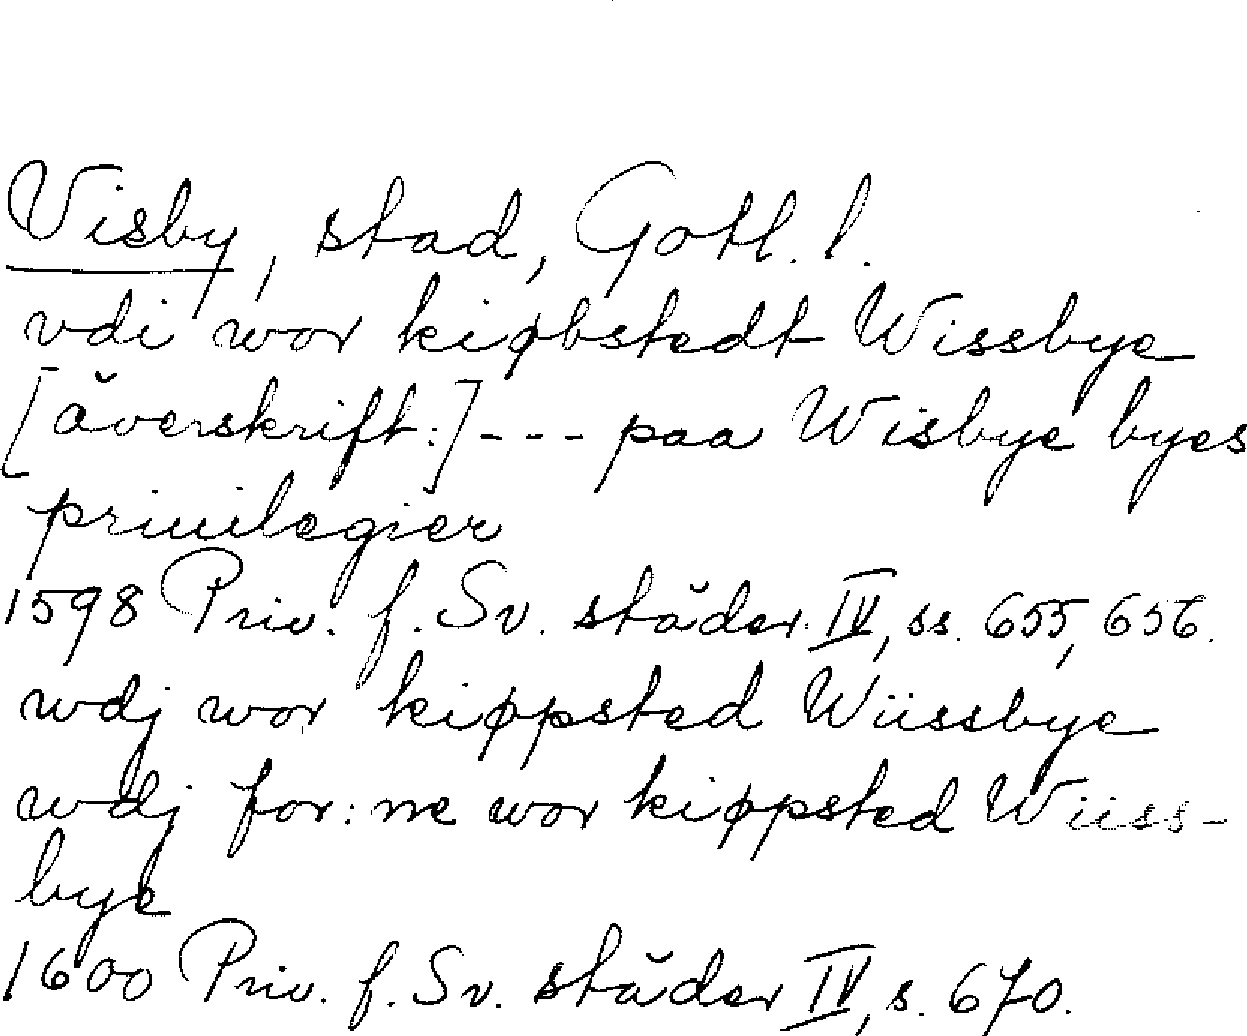 Visby, stad, Gotl. l.
vdi wor kiøbstedt Wissbye
[överskrift:] - - - paa Wisbye byes
priuilegier
1598 Priv. f. Sv. städer IV, ss. 655, 656.
wdj wor kiøppsted Wiissbye
wdj for: ne wor kiøppsted Wiiss-
bye
1600 Priv. f. Sv. städer IV, s. 670.